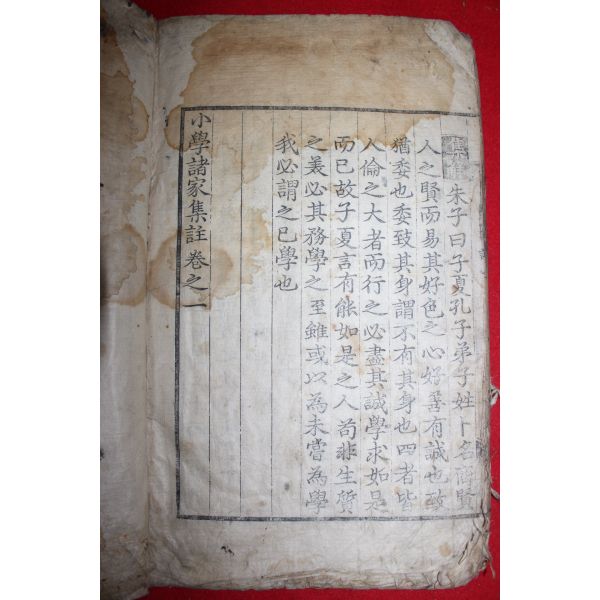 集解 朱子曰子夏孔子弟子姓卜名商賢
人之賢而易其好色之心好善有誠也致
猶委也委致其身謂不有其身也四者皆
人倫之大者而行之必盡其誠學求如是
而已故子夏言有能如是之人苟非生質
之美必其務學之至雖或以為未嘗為學
我必謂之已學也
小學諸家集註卷之一